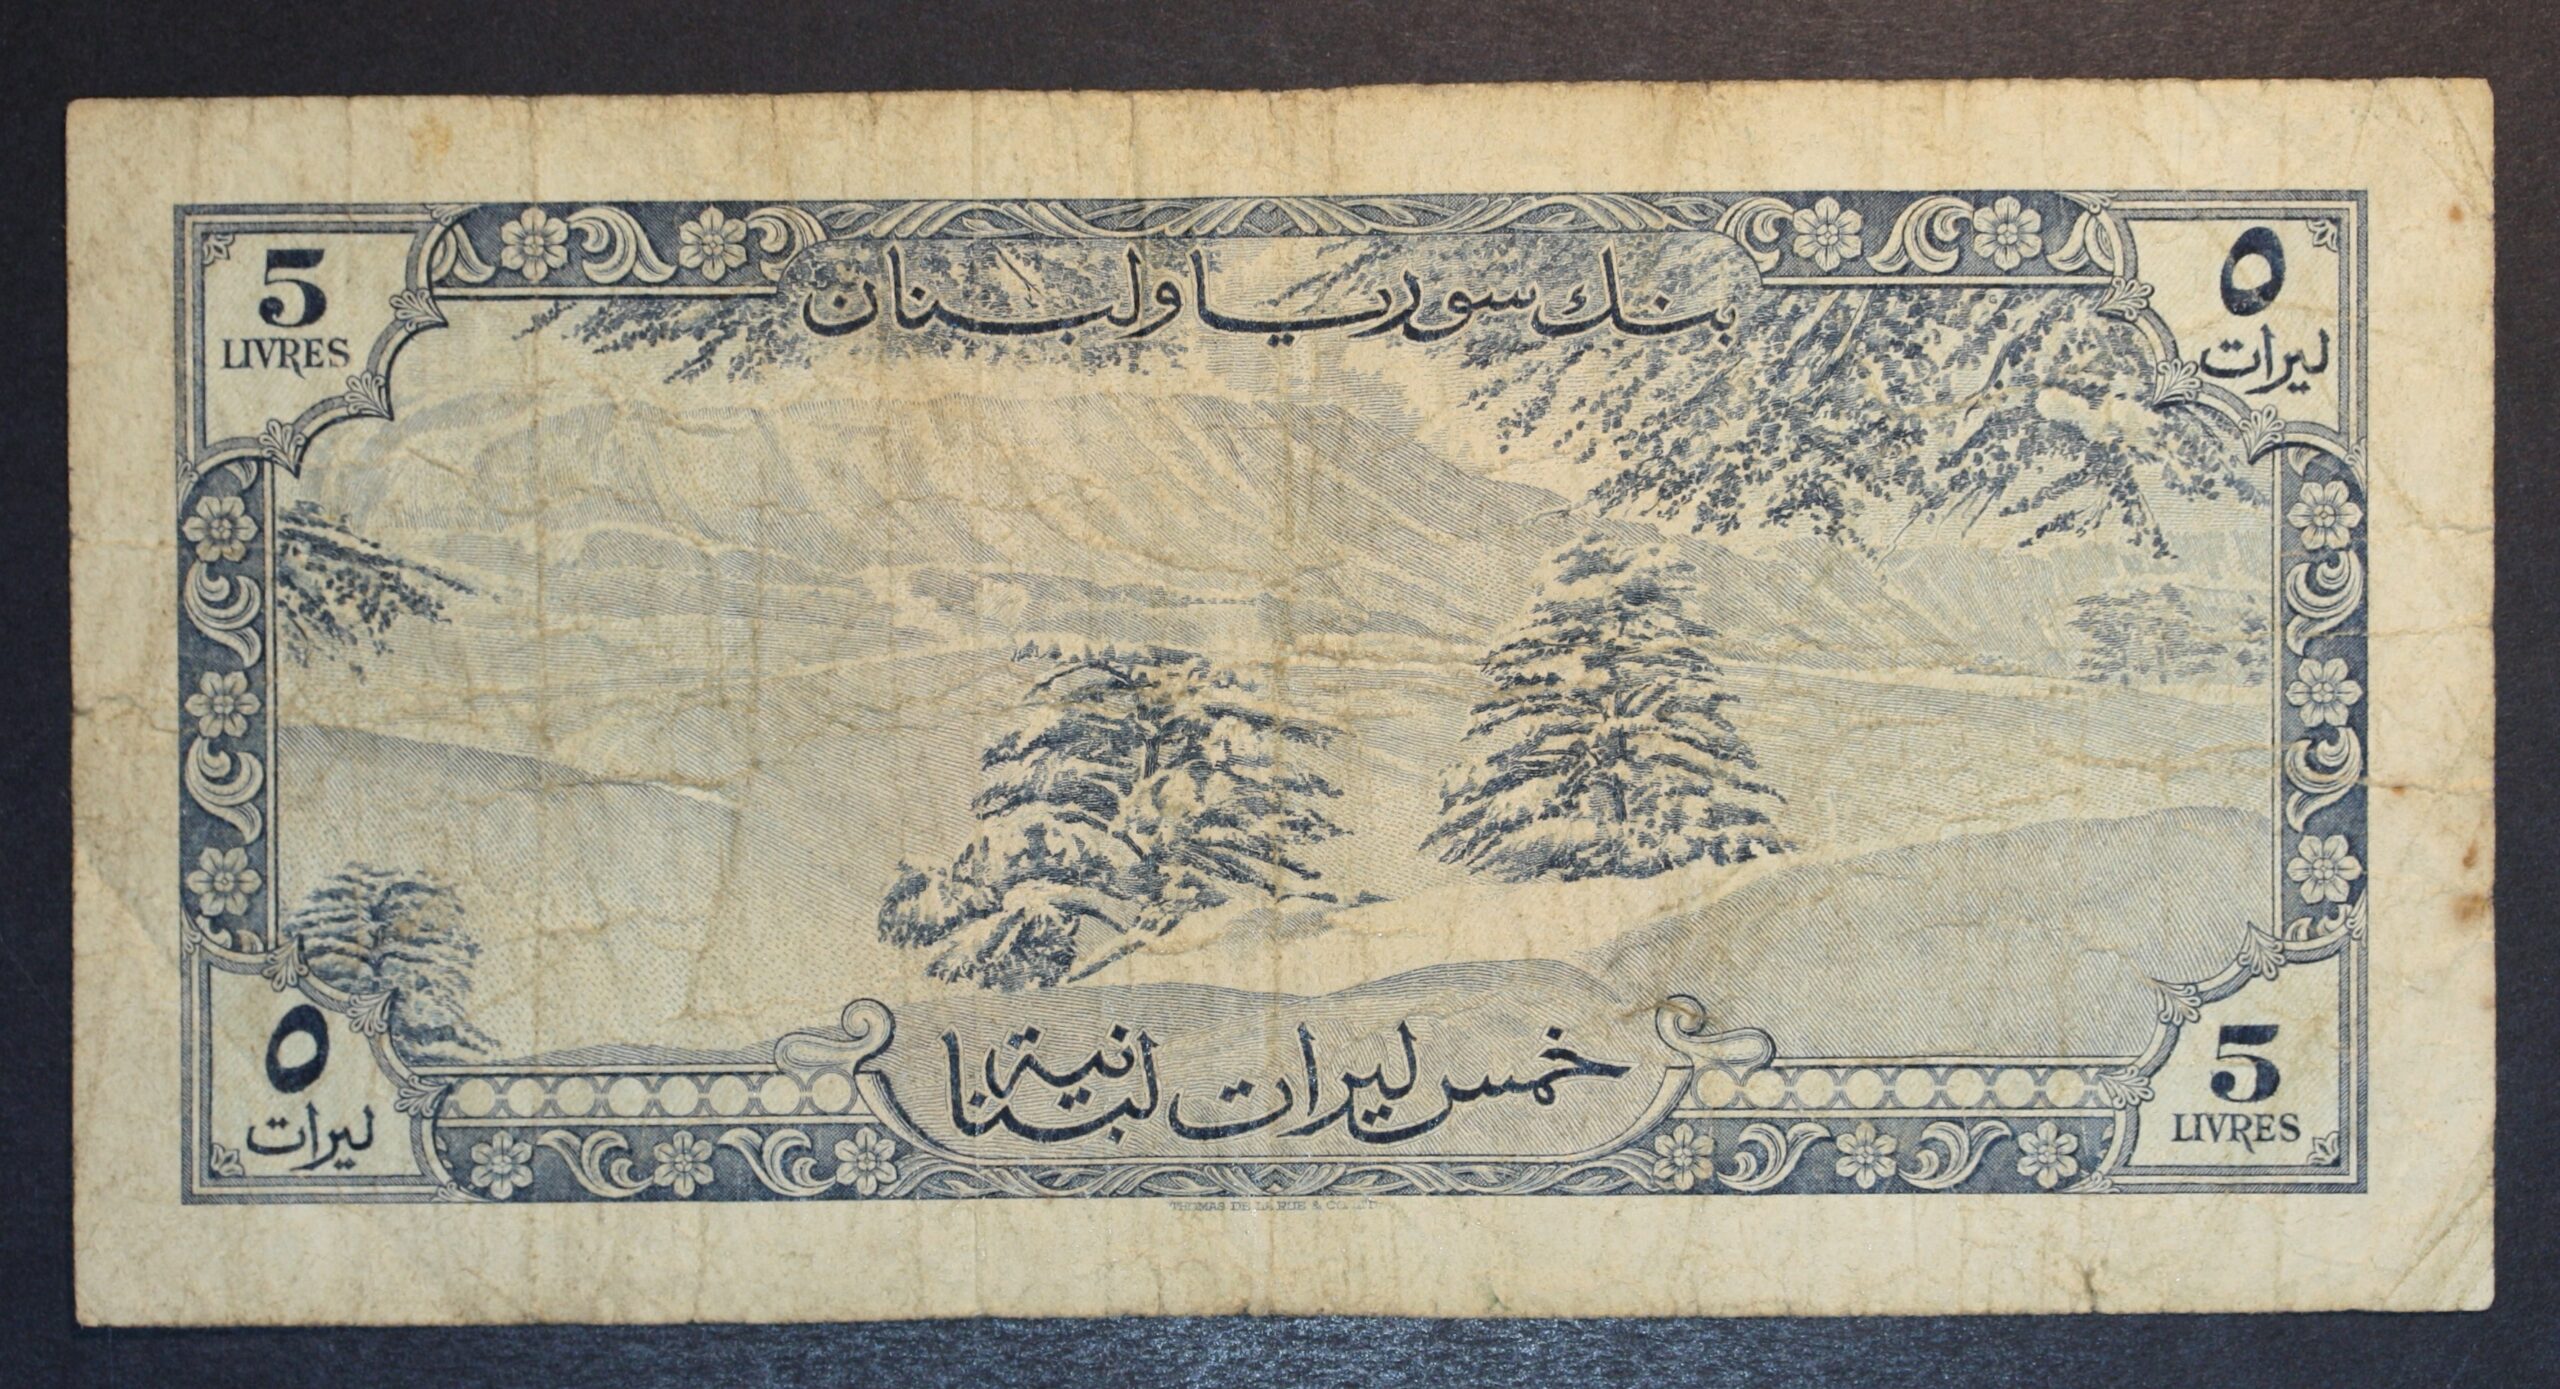 5
LIVRES
بنك سوريا ولبنان
٥
ليرات
٥
ليرات
خمس ليرات لبنانية
5
LIVRES
THOMAS DE LA RUE & CO. LTD.